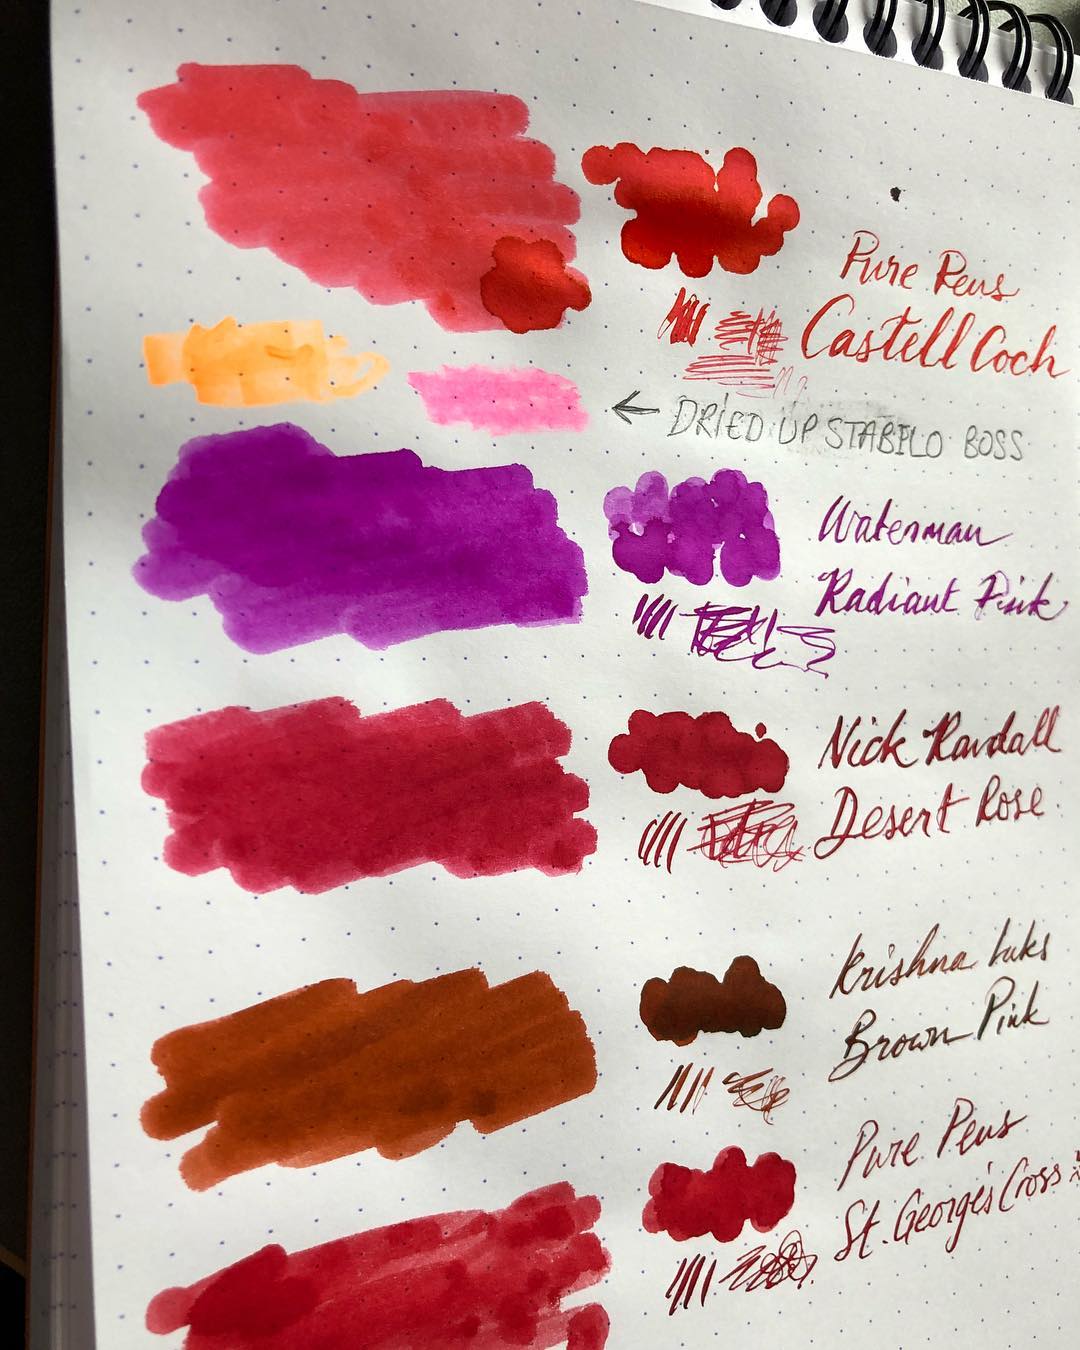 Pure Pens
Castell Coch
← DRIED UP STABILO BOSS
Waterman
Radiant Pink
Nick Randall
Desert Rose
Krishna Inks
Brown Pink
Pure Pens
St. George's Cross